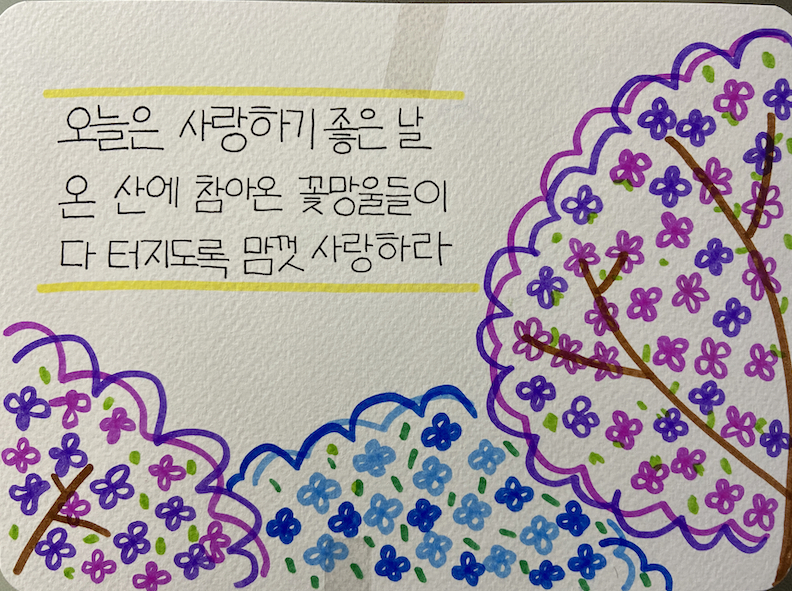 오늘은 사랑하기 좋은 날
온 산에 참아온 꽃망울들이
다 터지도록 맘껏 사랑하라